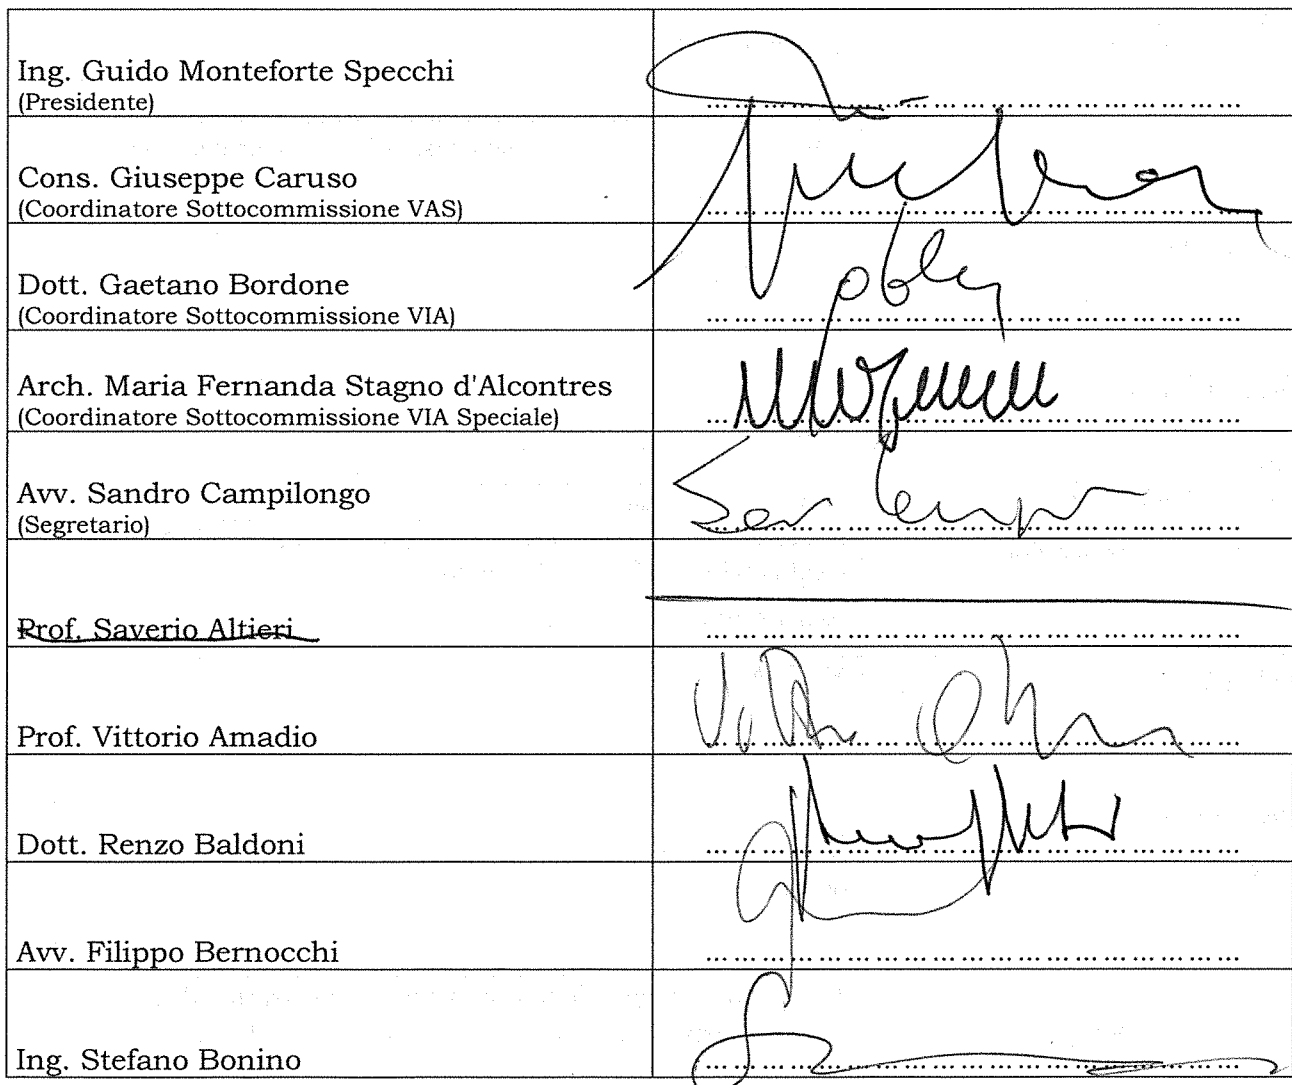 Ing. Guido Monteforte Specchi
(Presidente)
Cons. Giuseppe Caruso
(Coordinatore Sottocommissione VAS)
Dott. Gaetano Bordone
(Coordinatore Sottocommissione VIA)
Arch. Maria Fernanda Stagno d'Alcontres
(Coordinatore Sottocommissione VIA Speciale)
Avv. Sandro Campilongo
(Segretario)
Prof. Saverio Altieri
Prof. Vittorio Amadio
Dott. Renzo Baldoni
Avv. Filippo Bernocchi
Ing. Stefano Bonino